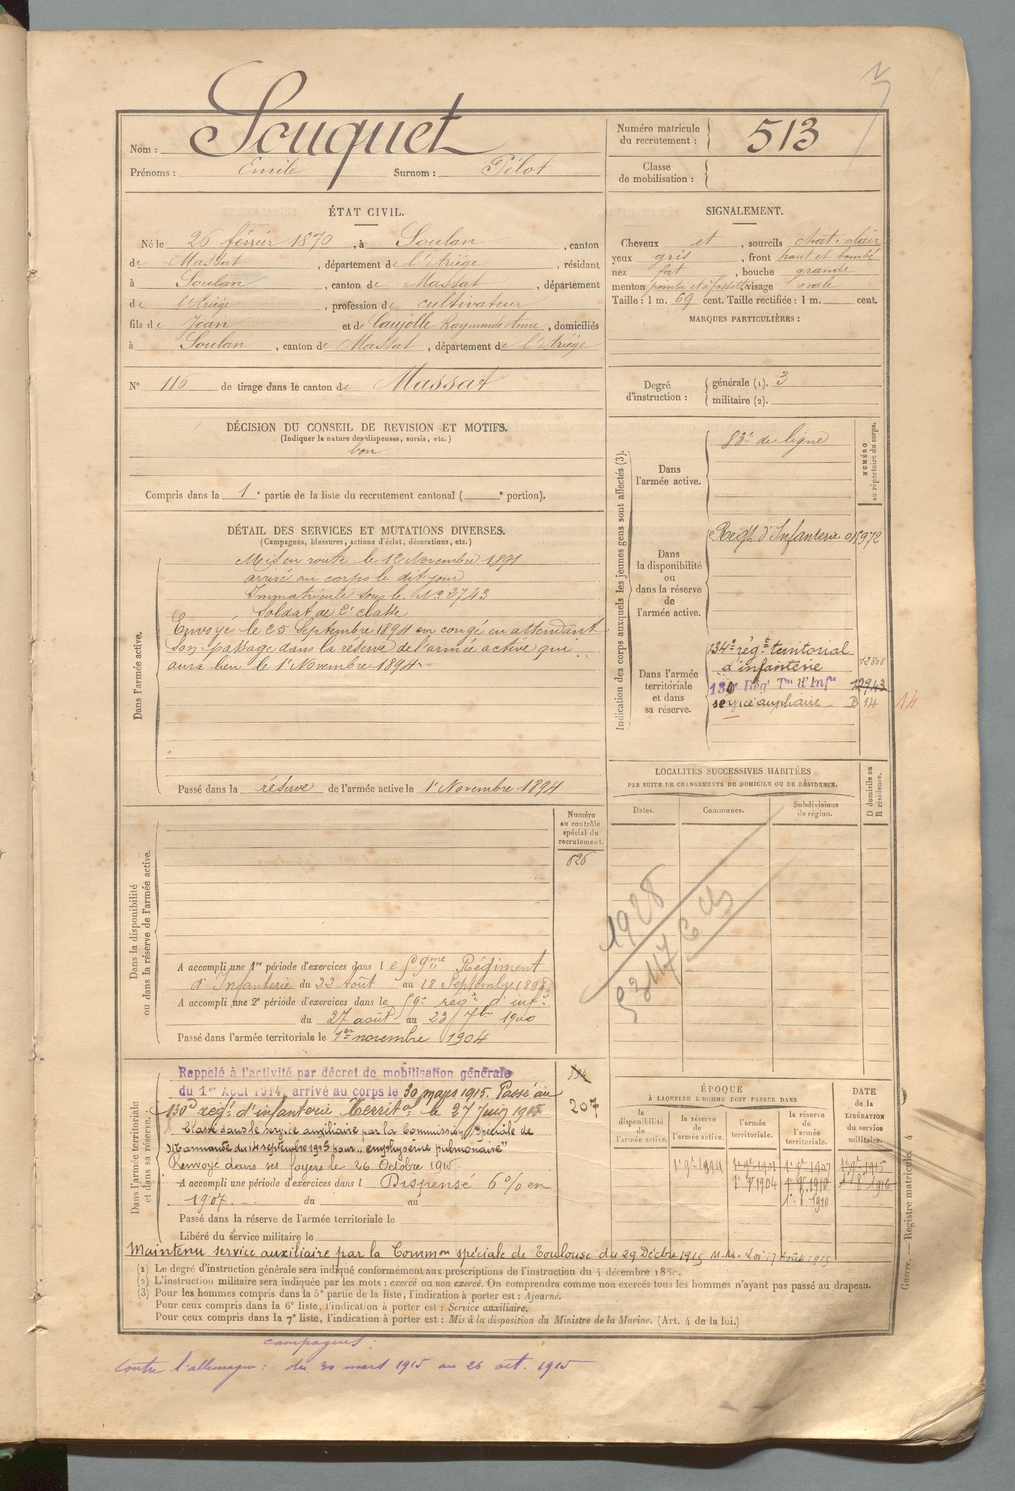 Nom : Souquet
Prénoms : Emile Surnom : Pélot
Numéro matricule du recrutement : 513
Classe de mobilisation :
ÉTAT CIVIL.
Né le 26 février 1870, à Soulan, canton
de Massat, département de l'Ariége, résidant
à Soulan, canton de Massat, département
de l'Ariége, profession de cultivateur
fils de Jean et de Caujolle Raymonde Anne, domiciliés
à Soulan, canton de Massat, département de l'Ariége
N° 116 de tirage dans le canton de Massat
DÉCISION DU CONSEIL DE REVISION ET MOTIFS.
(Indiquer la nature des dispenses, sursis, etc.)
bon
Compris dans la 1e partie de la liste du recrutement cantonal ( e portion).
SIGNALEMENT.
Cheveux et, sourcils chât. clair
yeux gris, front haut et bombé
nez fort, bouche grande
menton pointu et à fossette visage ovale
Taille : 1 m. 69 cent. Taille rectifiée : 1 m. cent.
MARQUES PARTICULIÈRES :
Degré d'instruction : générale (1). 3
militaire (2).
DÉTAIL DES SERVICES ET MUTATIONS DIVERSES.
(Campagnes, blessures, actions d'éclat, décorations, etc.)
Dans l'armée active.
Mis en route le 12 Novembre 1891
arrivé au corps le dit jour
Immatriculé sous le N° 2743
Soldat de 2e classe
Envoyé le 25 Septembre 1894 en congé en attendant
son passage dans la réserve de l'armée active qui
aura lieu le 1er Novembre 1894
Passé dans la réserve de l'armée active le 1er Novembre 1894
Indication des corps auxquels les jeunes gens sont affectés (3).
NUMÉRO au répertoire du corps.
Dans l'armée active.
83e de ligne
Dans la disponibilité ou dans la réserve de l'armée active.
Régt d'Infanterie
Dans l'armée territoriale et dans sa réserve.
134e régt territorial
d'infanterie
Régt Tal d'Infie 12943
service auxiliaire D 14
14
LOCALITÉS SUCCESSIVES HABITÉES
PAR SUITE DE CHANGEMENTS DE DOMICILE OU DE RÉSIDENCE.
Dates. Communes. Subdivisions de région. D domicile ou R résidence.
1928
Dans la disponibilité ou dans la réserve de l'armée active.
Numéro au contrôle spécial du recrutement.
626
A accompli une 1re période d'exercices dans le 59me Régiment
d'Infanterie du 22 Août au 18 Septembre 1898
A accompli une 2e période d'exercices dans le 59e régt d'inf.
du 27 août au 23 7bre 1900
Passé dans l'armée territoriale le 1er novembre 1904
Dans l'armée territoriale et dans sa réserve.
Rappelé à l'activité par décret de mobilisation générale
du 1er Août 1914, arrivé au corps le 30 mars 1915. Passé au
130e régt d'infanterie Territal le 27 Juin 1915
Classé dans le service auxiliaire par la Commission Spéciale de
Marmande du 14 septembre 1915 pour "emphysème pulmonaire"
Renvoyé dans ses foyers le 26 Octobre 1915
207
A accompli une période d'exercices dans l Dispensé 6 % en
1907. du au
Passé dans la réserve de l'armée territoriale le
Libéré du service militaire le
Maintenu service auxiliaire par la Common spéciale de Toulouse du 29 Décbre 1915 Loi 17 août 1915
ÉPOQUE
À LAQUELLE L'HOMME DOIT PASSER DANS
la disponibilité de l'armée active. la réserve de l'armée active. l'armée territoriale. la réserve de l'armée territoriale.
DATE de la LIBÉRATION du service militaire.
(1) Le degré d'instruction générale sera indiqué conformément aux prescriptions de l'instruction du 4 décembre 1889.
(2) L'instruction militaire sera indiquée par les mots : exercé ou non exercé. On comprendra comme non exercés tous les hommes n'ayant pas passé au drapeau.
(3) Pour les hommes compris dans la 5e partie de la liste, l'indication à porter est : Ajourné.
Pour ceux compris dans la 6e liste, l'indication à porter est : Service auxiliaire.
Pour ceux compris dans la 7e liste, l'indication à porter est : Mis à la disposition du Ministre de la Marine. (Art. 4 de la loi.)
campagnes :
Contre l'allemagne : du 30 mars 1915 au 26 oct. 1915
Guerre. — Registre matricule 4